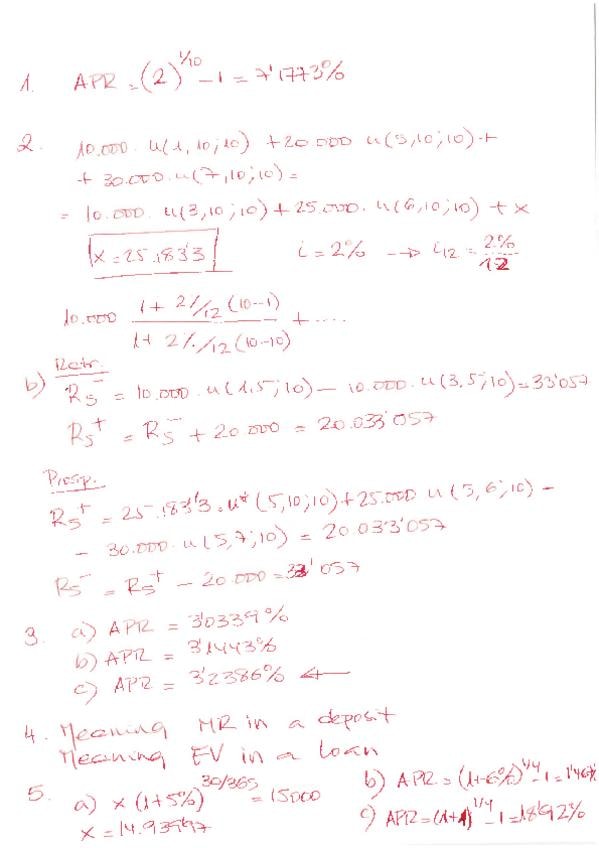 1. APR = (2)^1/10 - 1 = 7'1773%
2. 10.000 · u(1,10;10) + 20.000 u(5,10;10) +
+ 30.000 · u(7,10;10) =
= 10.000 · u(3,10;10) + 25.000 · u(6,10;10) + x
x = 25.183'3 i = 2% → i12 = 2%/12
10.000 (1 + 2%/12 (10-1)) / (1 + 2%/12 (10-10)) + ....
b) Retr.
R5^- = 10.000 · u(1,5;10) - 10.000 · u(3,5;10) = 33'057
R5^+ = R5^- + 20.000 = 20.033'057
Prosp.
R5^+ = 25.183'3 · u*(5,10;10) + 25.000 u(5,6;10) -
- 30.000 · u(5,7;10) = 20.033'057
R5^- = R5^+ - 20.000 = 33'057
3. a) APR = 3'0339%
b) APR = 3'1443%
c) APR = 3'2386% ←
4. Meaning MR in a deposit
Meaning EV in a loan
5. a) x (1+5%)^30/365 = 15000
x = 14.939'97
b) APR = (1+6%)^1/4 - 1 = 1'467%
c) APR = (1+1)^1/4 - 1 = 18'92%